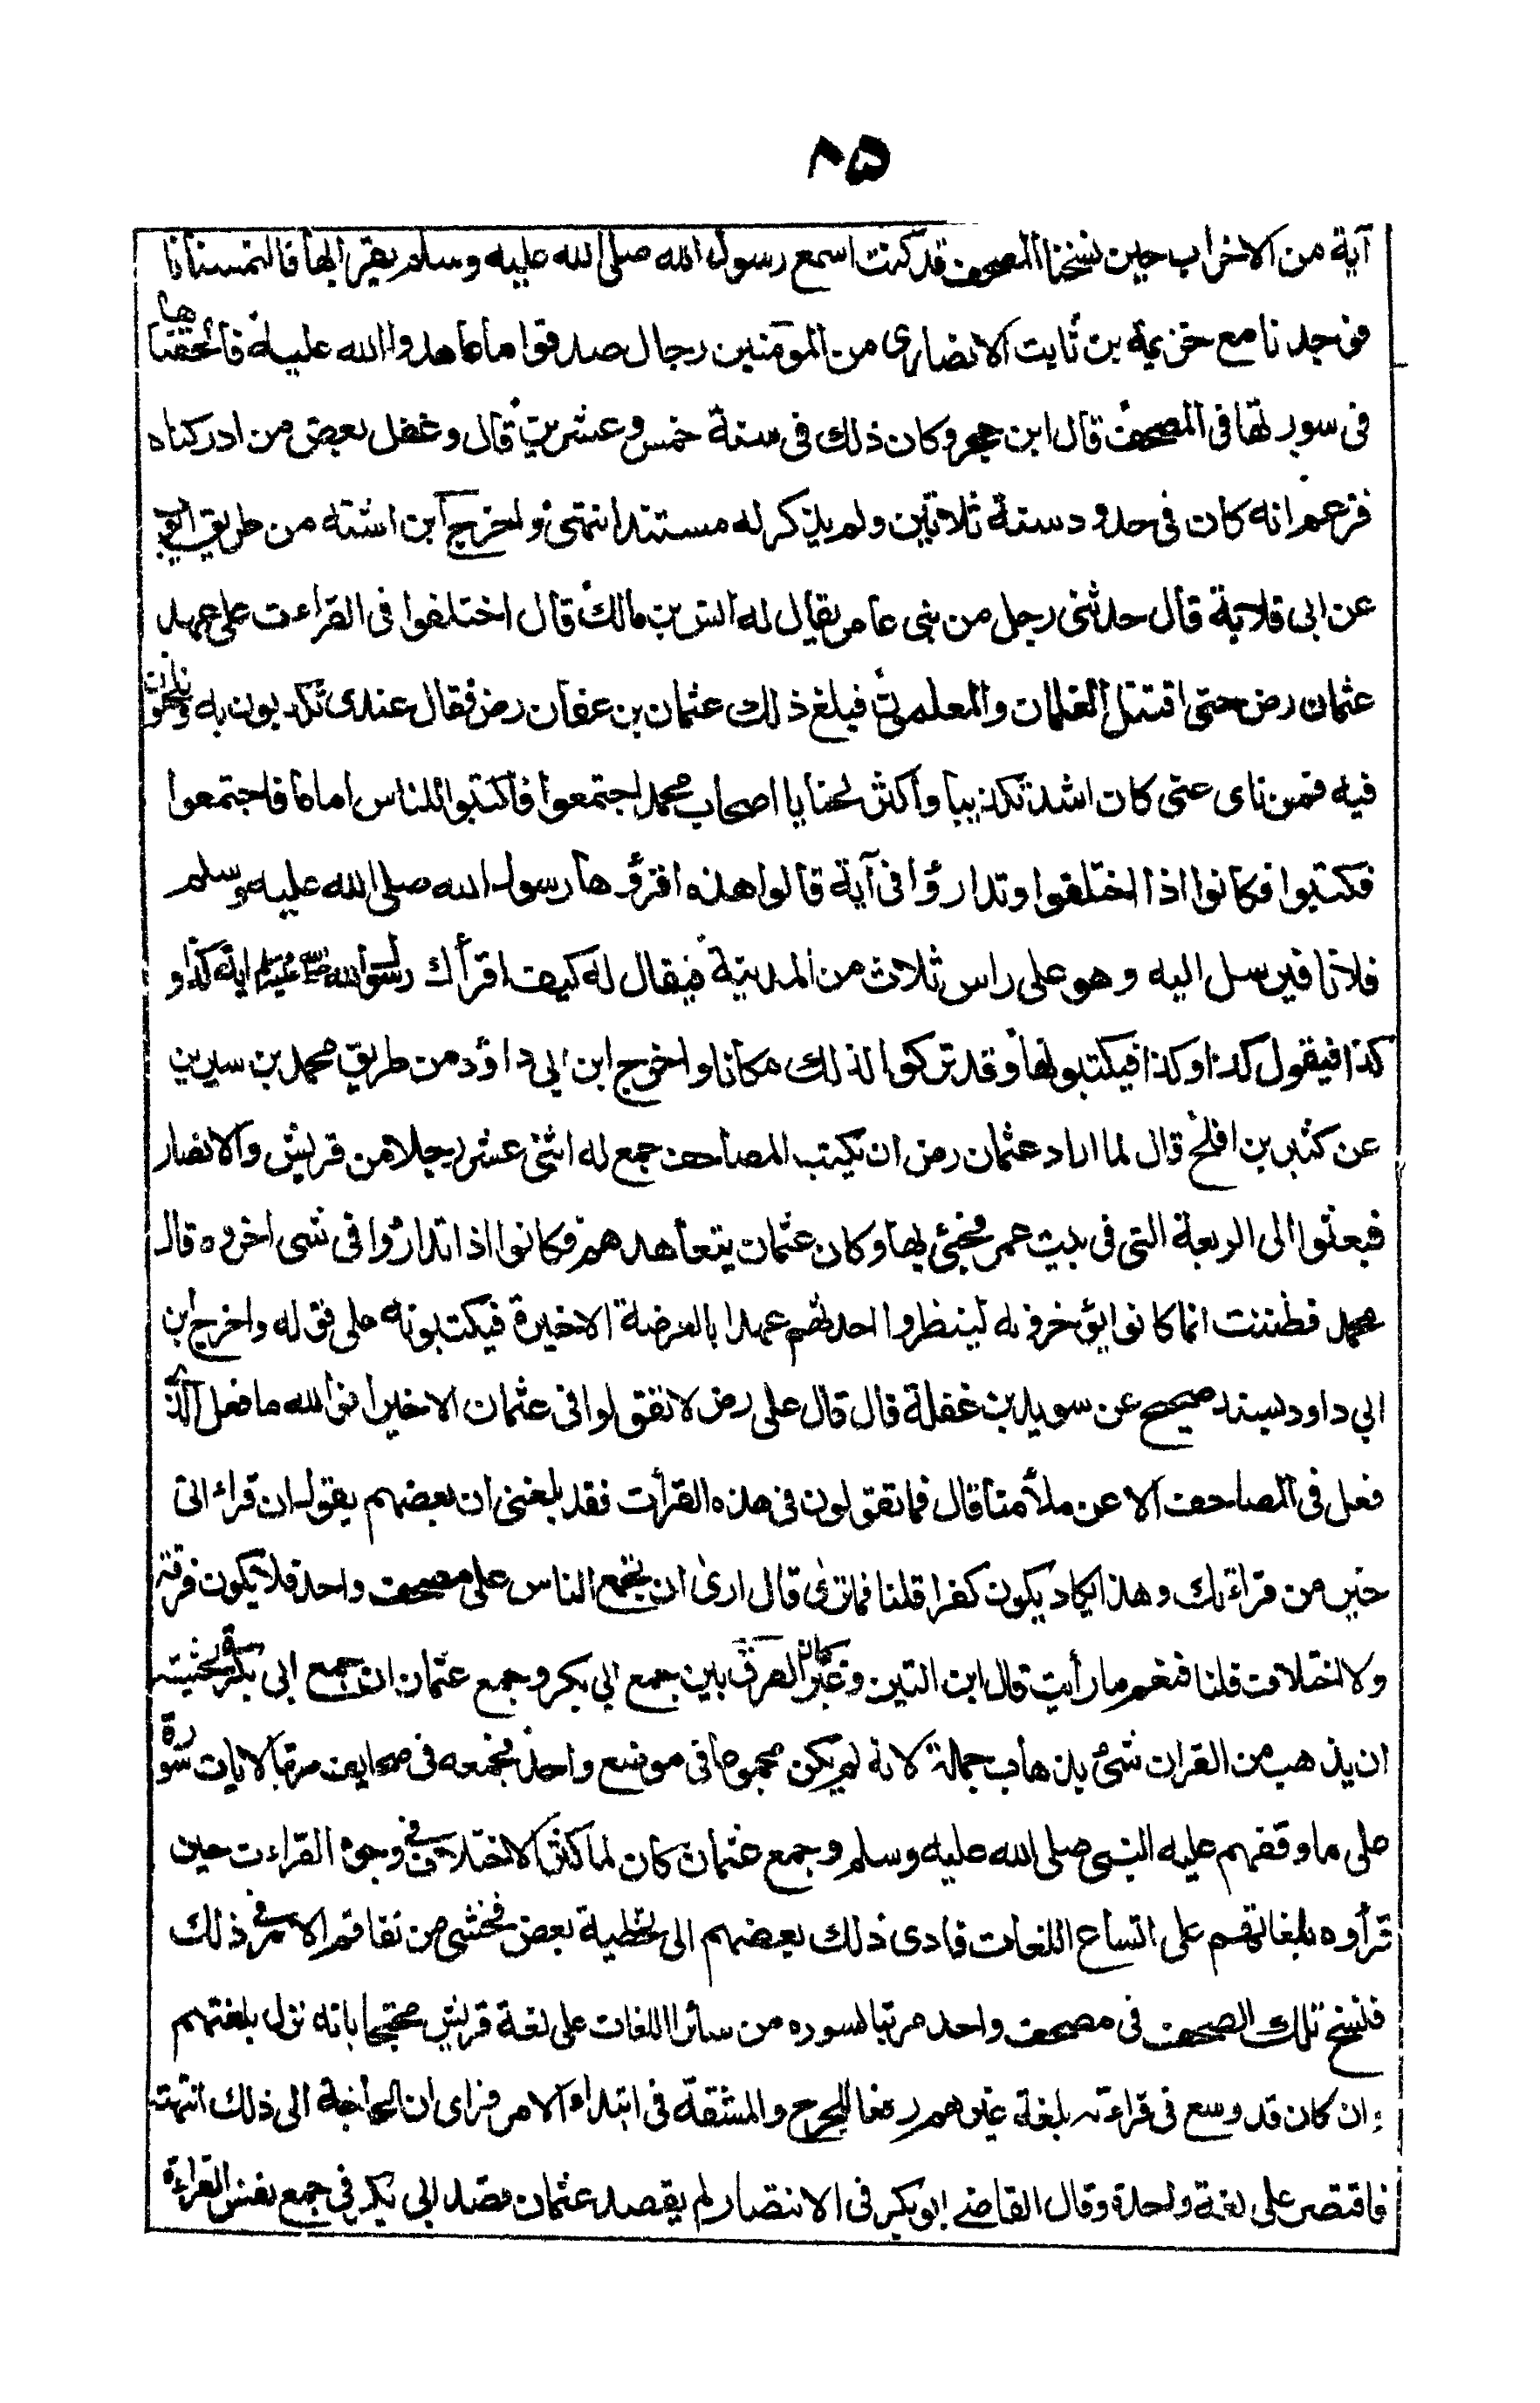 ٨٥
آية من الاحزاب حين نسخنا المصحف قد كنت اسمع رسول الله صلى الله عليه وسلم يقرأ بها فالتمسناها
فوجدنا مع خزيمة بن ثابت الانصارى من المؤمنين رجال صدقوا ما عاهدوا الله عليه فألحقناها
فى سورتها فى المصحف قال ابن حجر وكان ذلك فى سنة خمس وعشرين قال وغفل بعض من ادركناه
فزعم انه كان فى حدود سنة ثلاثين ولم يذكر له مستندا انتهى واخرج ابن اشته من طريق ايوب
عن ابى قلابة قال حدثنى رجل من بنى عامر يقال له انس بن مالك قال اختلفوا فى القراءت على عهد
عثمان رض حتى اقتتل الغلمان والمعلمون فبلغ ذلك عثمان بن عفان رض فقال عندى تكذبون به وتلحنون
فيه فمن ناى عنى كان اشد تكذيبا وأكثر لحنا يا اصحاب محمد اجتمعوا فاكتبوا للناس اماما فاجتمعوا
فكتبوا فكانوا اذا اختلفوا وتدارؤا فى آية قالوا هذه اقرؤها رسول الله صلى الله عليه وسلم
فلانا فيرسل اليه وهو على راس ثلاث من المدينة فيقال له كيف اقرأك رسول الله صلى الله عليه وسلم اية كذا و
كذا فيقول كذا وكذا فيكتبونها وقد تركوا لذلك مكانا واخرج ابن ابى داؤد من طريق محمد بن سيرين
عن كثير بن افلح قال لما اراد عثمان رض ان يكتب المصاحف جمع له اثنى عشر رجلا من قريش والانصار
فبعثوا الى الربعة التى فى بيت عمر فجئ بها وكان عثمان يتعاهدهم فكانوا اذا تدارؤا فى شى اخروه قال
محمد فظننت انما كانوا يؤخرونه لينظروا احدثهم عهدا بالعرضة الاخيرة فيكتبونه على قوله واخرج ابن
ابى داود بسند صحيح عن سويد بن غفلة قال قال على رض لا تقولوا فى عثمان الا خيرا فوالله ما فعل الذى
فعل فى المصاحف الا عن ملأ منا قال فما تقولون فى هذه القرأت فقد بلغنى ان بعضهم يقول ان قراءتى
خير من قراءتك وهذا يكاد يكون كفرا قلنا فما ترى قال ارى ان يجمع الناس على مصحف واحد فلا يكون فرقة
ولا اختلاف قلنا فنعم ما رأيت قال ابن التين وغيره الفرق بين جمع ابى بكر وجمع عثمان ان جمع ابى بكر كان لخشية
ان يذهب من القران شئ بذهاب جملة لانه لم يكن مجموعا فى موضع واحد فجمعه فى صحايف مرتبا لايات سورة
على ما وقفهم عليه النبى صلى الله عليه وسلم وجمع عثمان كان لما كثر الاختلاف فى وجوه القراءت حين
قرأوه بلغاتهم على اتساع اللغات فادى ذلك بعضهم الى تخطية بعض فخشى من تفاقم الامر فى ذلك
فنسخ تلك الصحف فى مصحف واحد مرتبا لسوره من سائر اللغات على لغة قريش محتجا بانه نزل بلغتهم
وان كان قد وسع فى قراءته بلغة غيرهم رفعا للحرج والمشقة فى ابتداء الامر فراى ان الحاجة الى ذلك انتهت
فاقتصر على لغة واحدة وقال القاضى ابو بكر فى الانتصار لم يقصد عثمان قصد ابى بكر فى جمع نفس القراءة